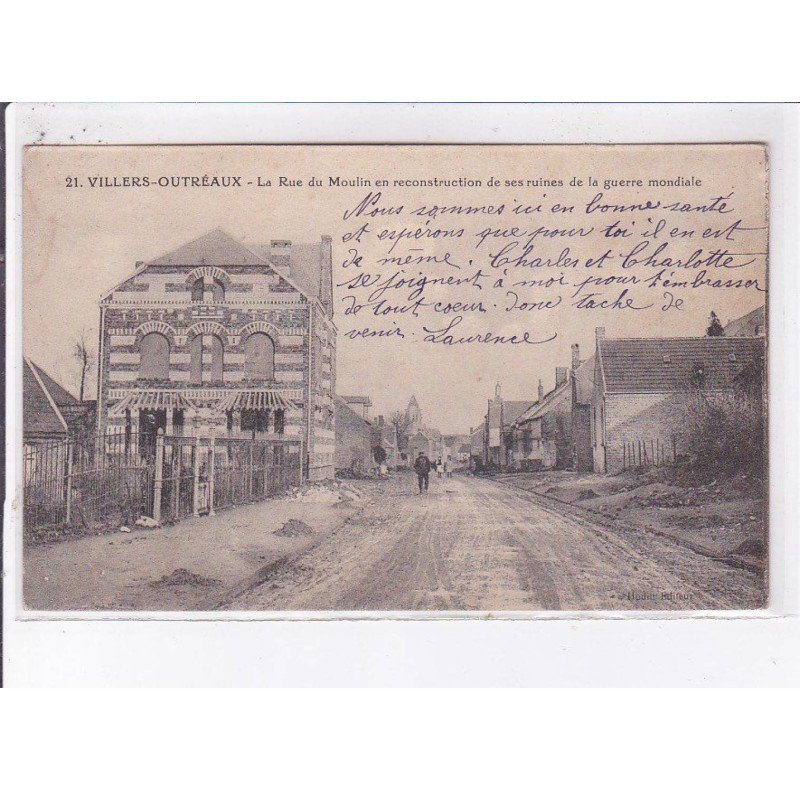 21. VILLERS-OUTRÉAUX - La Rue du Moulin en reconstruction de ses ruines de la guerre mondiale
Nous sommes ici en bonne santé
et espérons que pour toi il en est
de même. Charles et Charlotte
se joignent à moi pour t'embrasser
de tout coeur. Donc tache de
venir. Laurence
Editeur